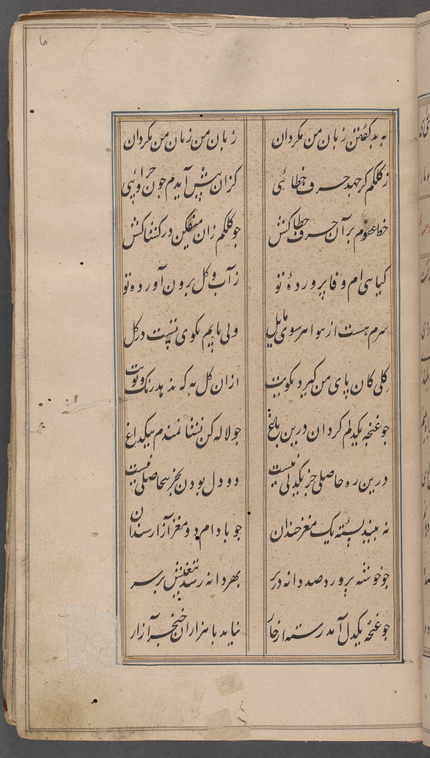 به بد گفتن زبان من مکردان زبان من زیان من مکردان
ز کلکم کر جهد حرف خطائی کزان پیش آیدم چون و چرایی
خط عفوم بر آن حرف خطا کش چو کلکم زان میفکن در کشاکش
کیاهی ام وفا پرورده تو ز آب و کل برون آورده تو
سرم هست از هوا هر سوی مایل ولی پایم بکوی تست در کل
کلی کان پای من کیرد بکویت ازان کل به که ندهد رنک و بویت
چو غنچه یکدلم کردان درین باغ چو لاله کن نشانمندم بیکداغ
درین ره حاصلی جز یکدلی نیست دو دل بودن بجز بیحاصلی نیست
نه بیند پسته یک مغز خندان چو بادام دو مغز آزار سندان
چو خوشه پرورد صد دانه در بر بهر دانه رسد تیغیش بر سر
چو غنچه یکدل آمد رسته از خار نیابد با هزاران خنجر آزار